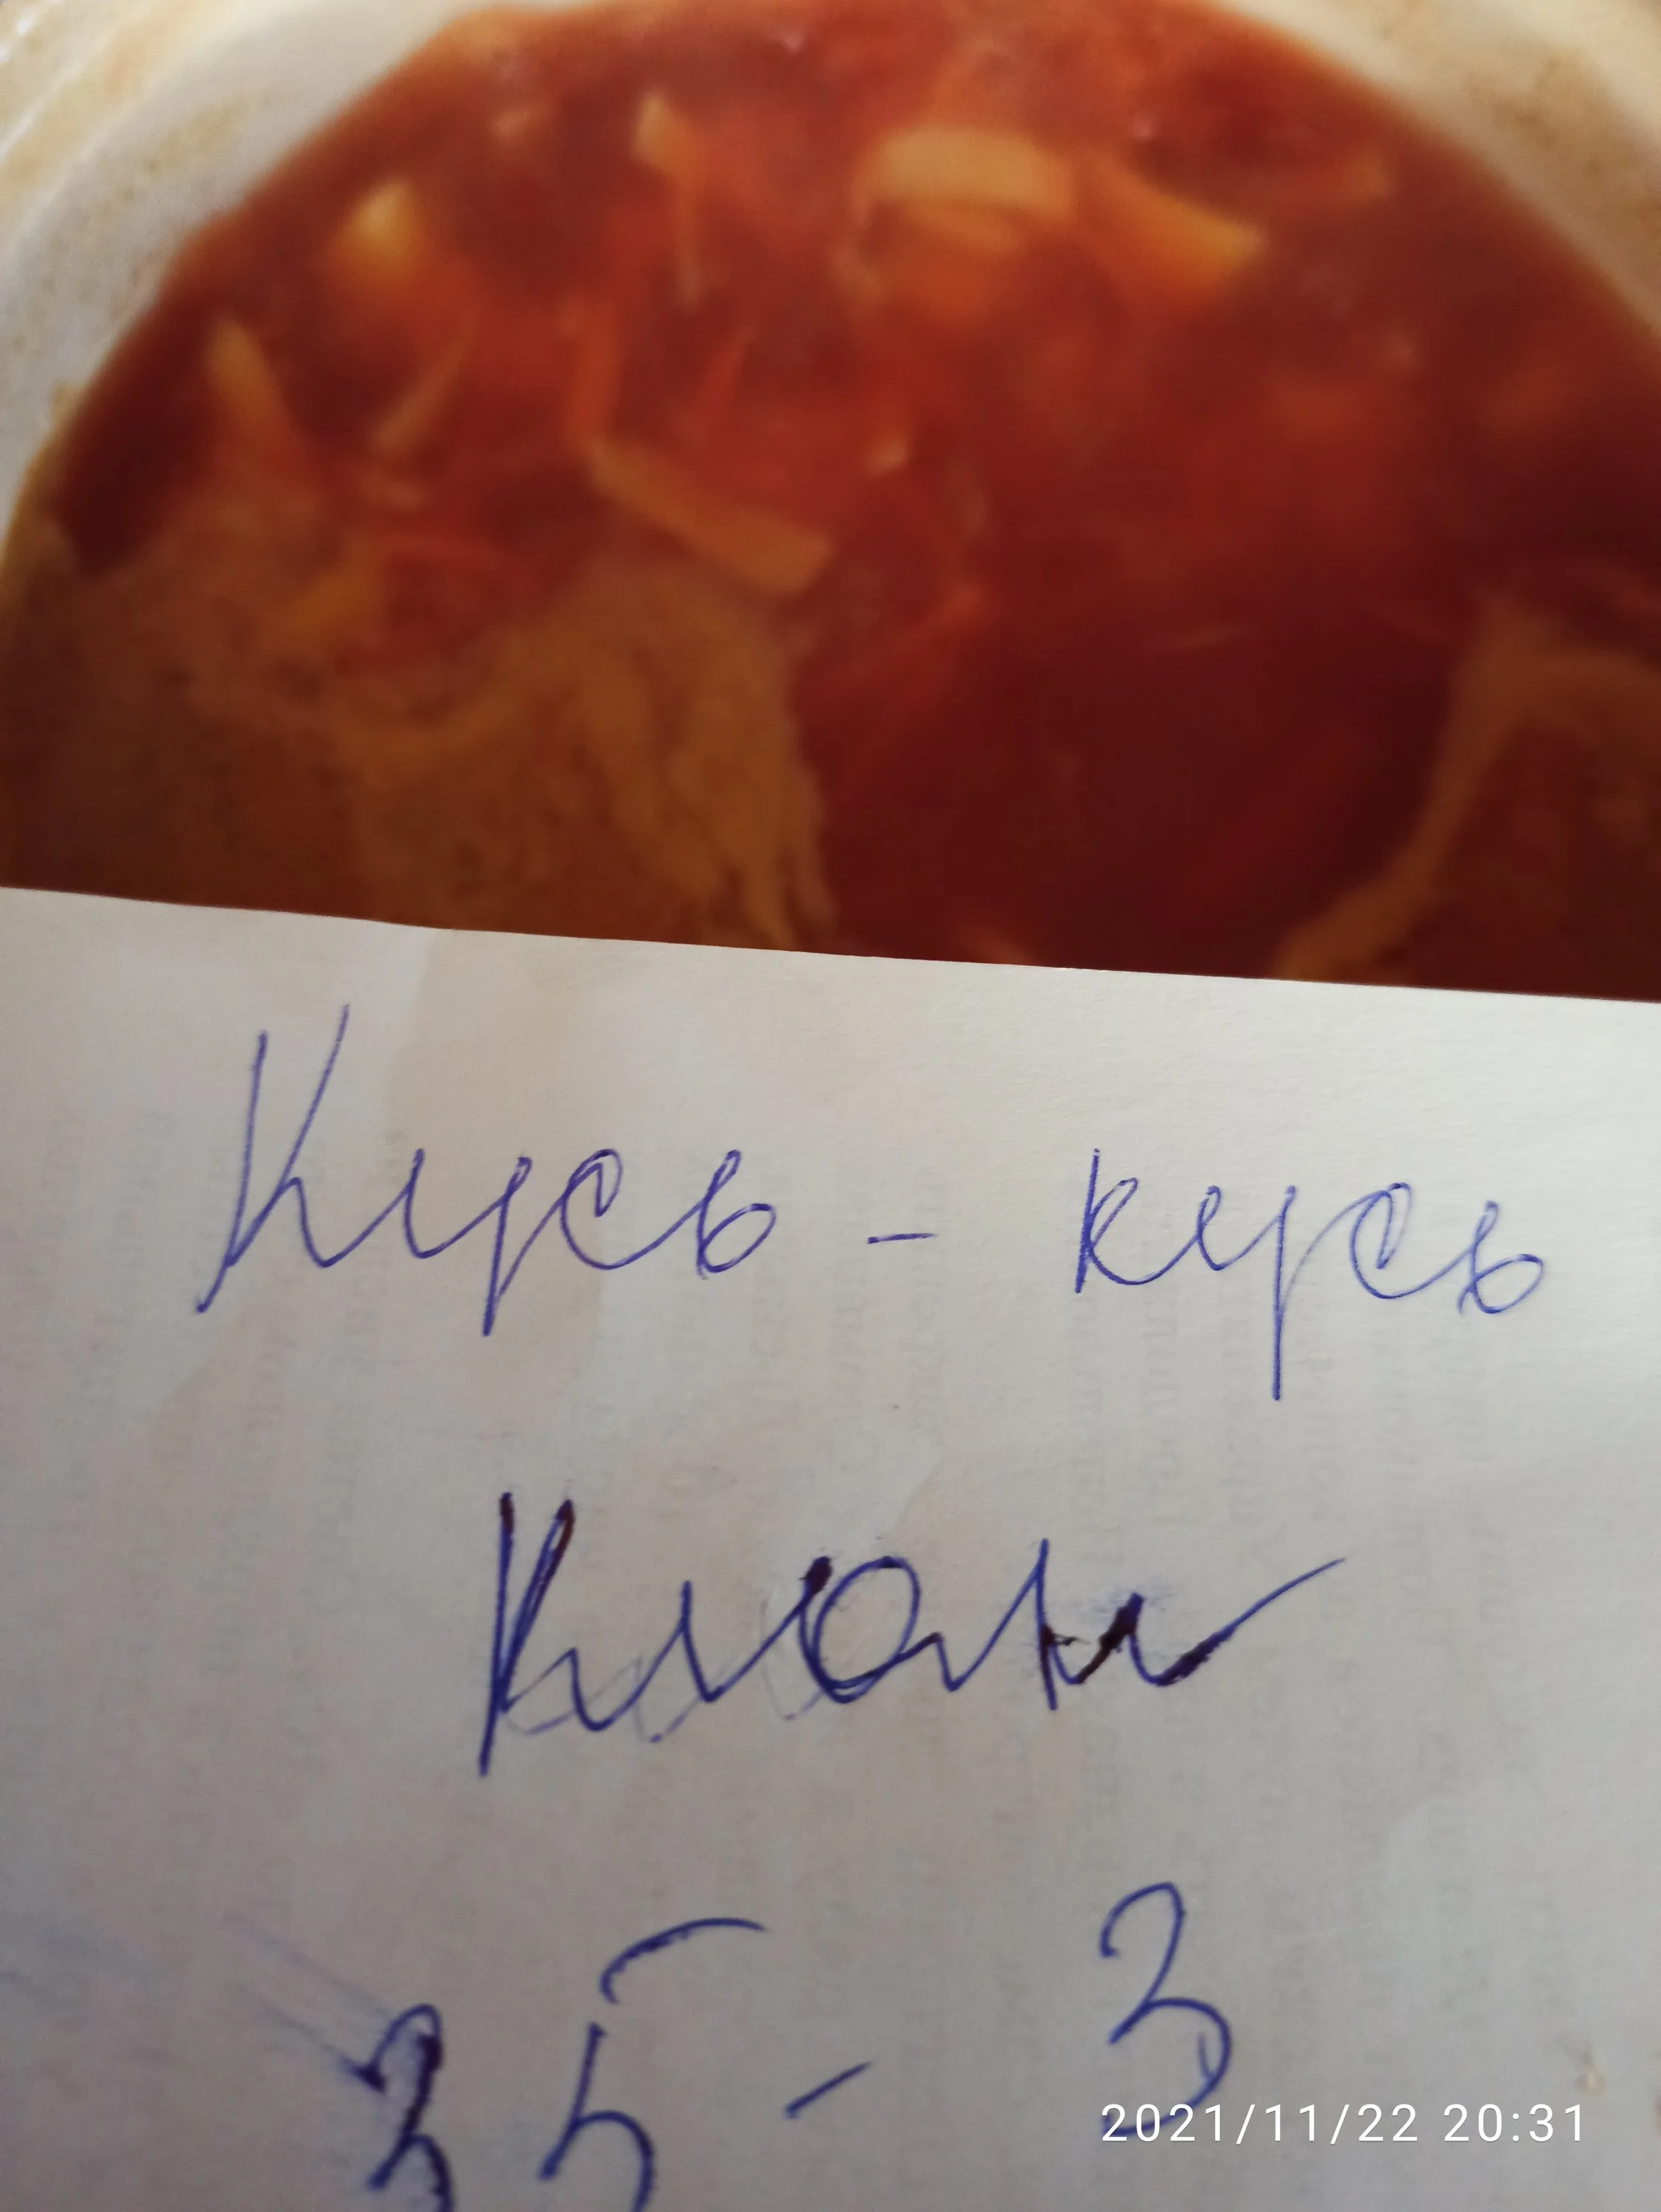 Кусь - кусь
Клан
35 - 3
2021/11/22 20:31